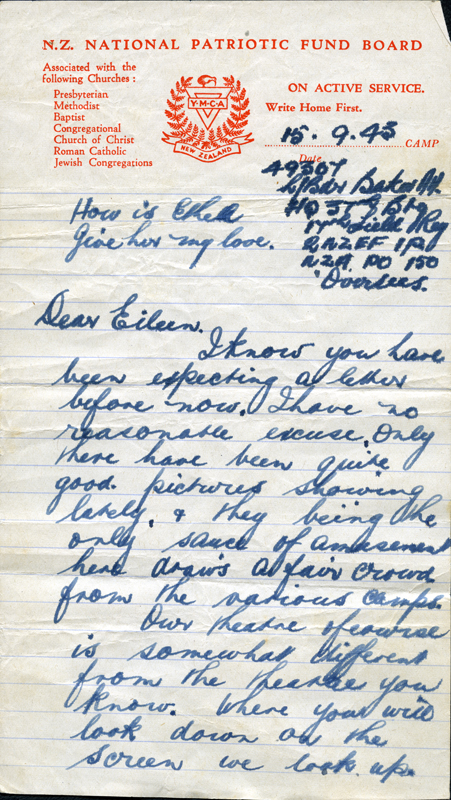 N.Z. NATIONAL PATRIOTIC FUND BOARD
Associated with the
following Churches:
Presbyterian
Methodist
Baptist
Congregational
Church of Christ
Roman Catholic
Jewish Congregations
Y·M·C·A
NEW ZEALAND
ON ACTIVE SERVICE.
Write Home First.
15. 9. 43
CAMP
Date
49567
L/Bdr Baker
HQ
14th Field Reg
2 NZEF IP
NZA PO 150
Overseas.
How is Ethel
Give her my love.
Dear Eileen.
I know you have
been expecting a letter
before now. I have no
reasonable excuse. Only
there have been quite
good pictures showing
lately, & they being the
only sauce of amusement
here draws a fair crowd
from the various camps.
Our theatre
is somewhat different
from the theatre you
know. Where you will
look down on the
screen we look up.